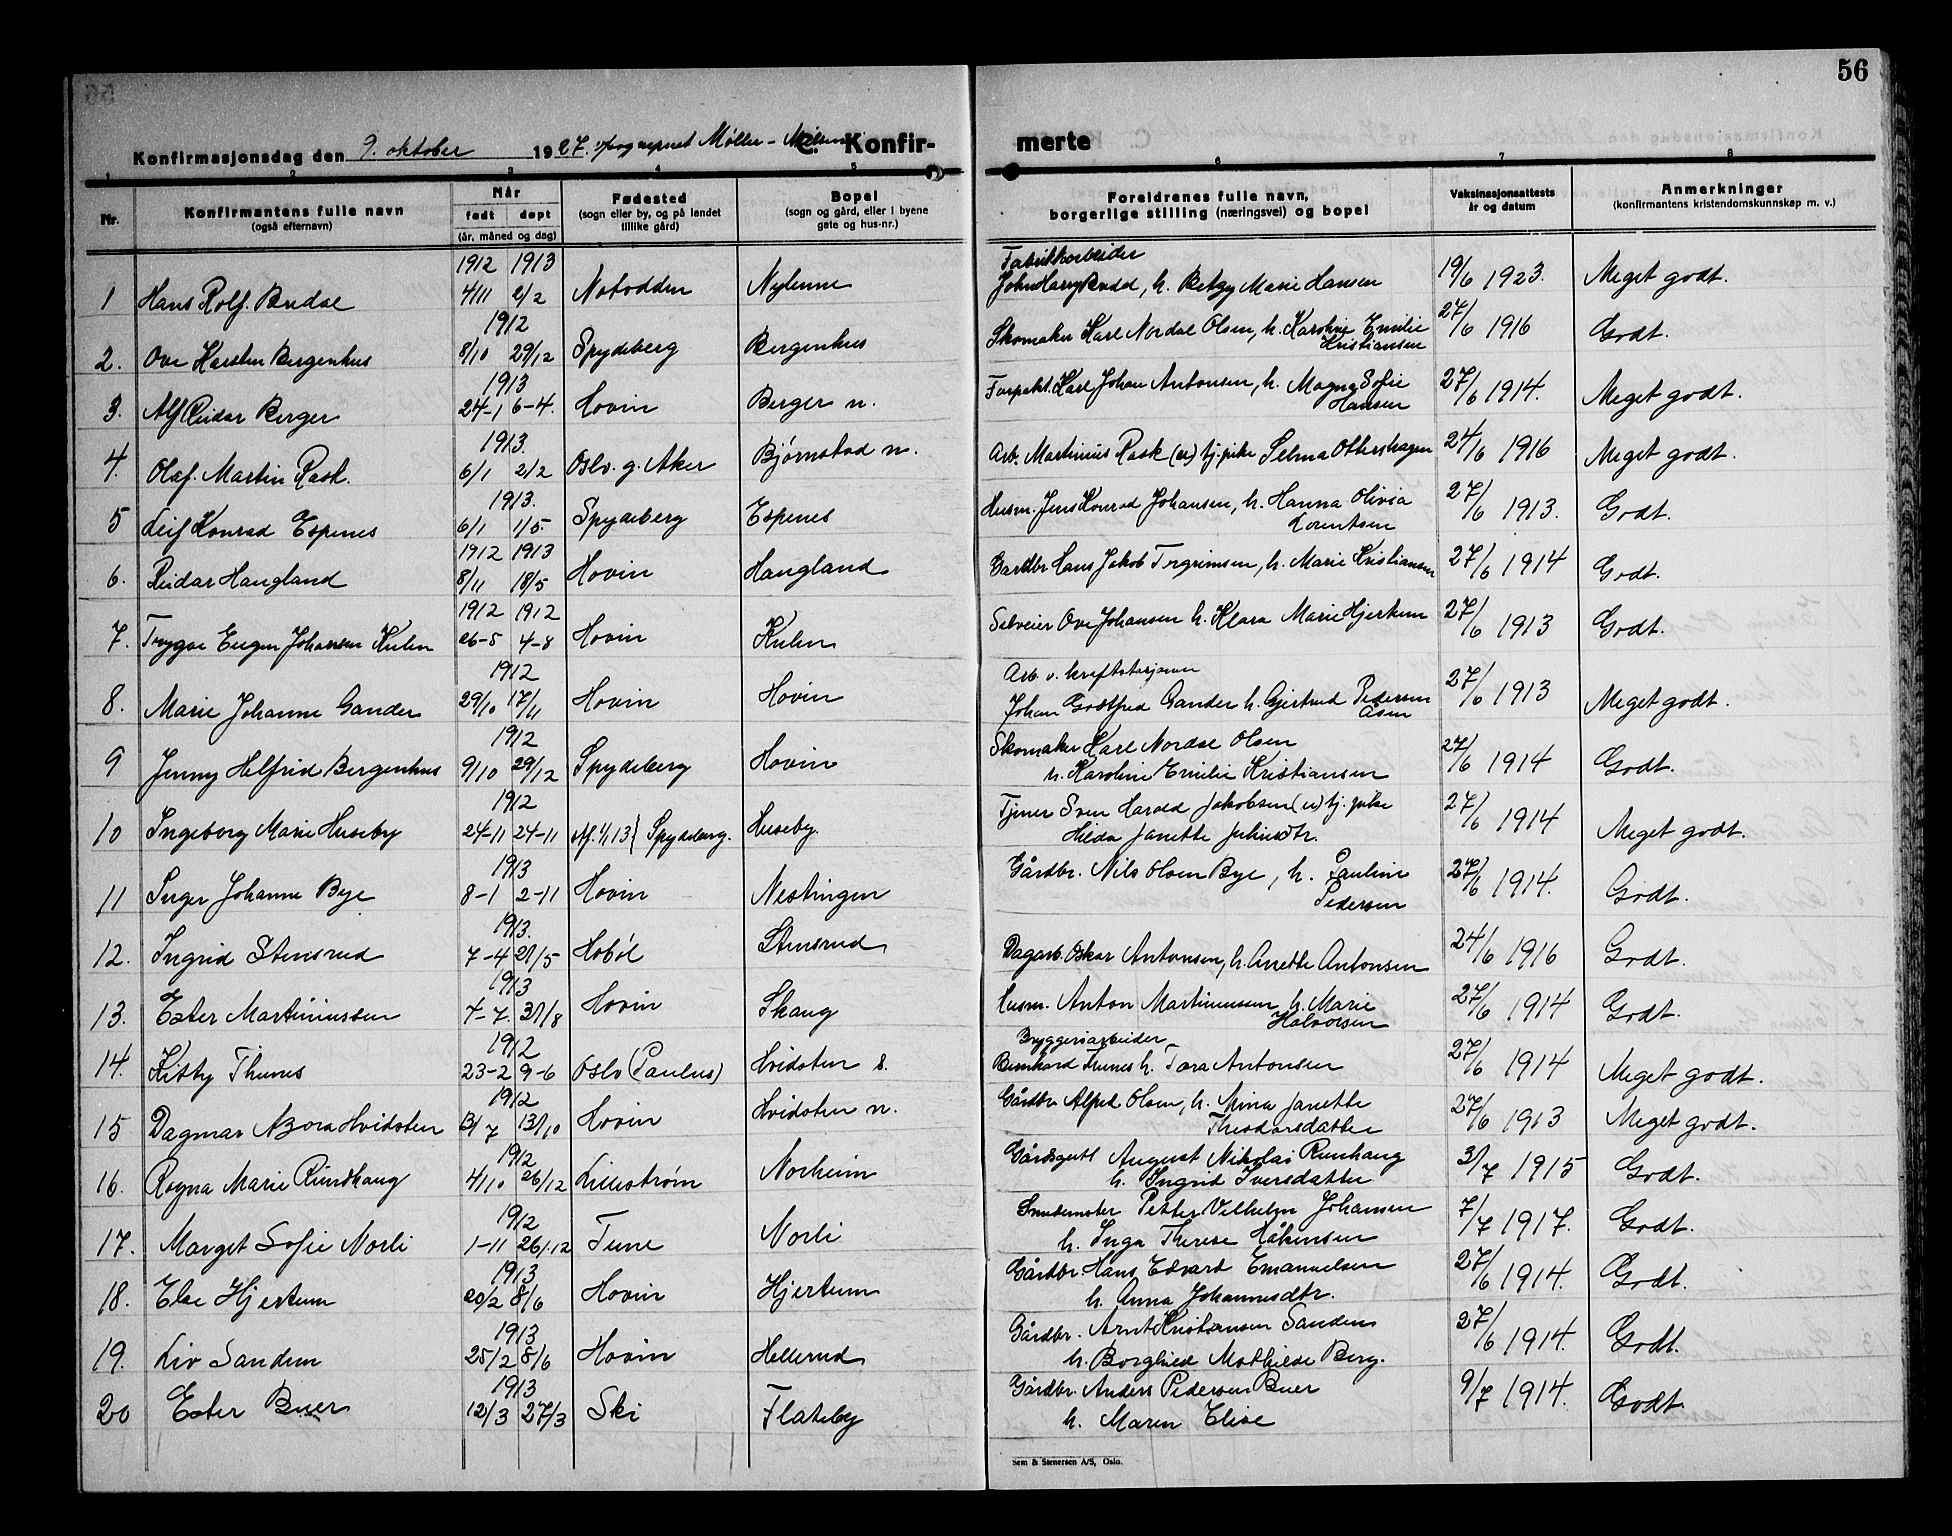 56
Konfirmasjonsdag den 9. oktober 1927. Møller - C. Konfir-
merte
1 2 3 4 5 6 7 8
Nr. Konfirmantens fulle navn (også efternavn) Når født døpt (år, måned og dag) Fødested (sogn eller by, og på landet tillike gård) Bopel (sogn og gård, eller i byene gate og hus-nr.) Foreldrenes fulle navn, borgerlige stilling (næringsvei) og bopel Vaksinasjonsattests år og datum Anmerkninger (konfirmantens kristendomskunnskap m. v.)
1912 1913 Fabrikkarbeider
1 Hans Rolf Budal 4/11 2/2 Notodden Nylenne John Harry Budal, h. Betzy Marie Hansen 19/6 1923. Meget godt.
1912
2. Ove Karsten Bergenhus 8/10 29/12 Spydeberg Bergenhus Skomaker Karl Nordal Olsen, h. Karoline Emilie Kristiansen 27/6 1916 Godt.
1913
3. Alf Reidar Berger 24-1 6-4. Hovin Berger n. Forpakt. Karl Johan Antonsen, h. Magna Sofie Hansen 27/6 1914. Meget godt.
1913.
4. Olaf Martin Rask. 6/1 2/2 Oslo. g. Aker Bjørnstad n. Arb. Martinius Rask (u) tj. pike Selma Ottershagen 24/6 1916 Meget godt.
1913.
5 Leif Konrad Espenes 6/1 1/5. Spydeberg Espenes Husm. Jens Konrad Johansen, h. Hanna Olivia Lorentsen 27/6 1913. Godt.
1912 1913
6. Reidar Haugland 8/11 18/5 Hovin Haugland Gardbr Hans Jakob Torgrimsen, h. Marie Kristiansen 27/6 1914 Godt.
1912 1912
7. Trygve Eugen Johansen Kulen 26-5 4-8 Hovin Kulen Selveier Ove Johansen h. Klara Marie Hjerkum 27/6 1913 Godt.
1912 Arb. v. kraftstasjonen
8. Marie Johanne Gander 29/10 17/11 Hovin Hovin Johan Godtfred Gander h. Gjertrud Pedersen Åsen 27/6 1913 Meget godt.
1912
9 Jenny Helfrid Bergenhus 9/10 29/12 Spydeberg Hovin Skomaker Karl Nordal Olsen h. Karoline Emilie Kristiansen 27/6 1914 Godt.
1912
10 Ingeborg Marie Huseby 24-11 24-11 stf. 1/1 13 Spydeberg. Huseby. Tjener Sven Harald Jakobsen (u) tj. pike Hilda Janette Juliusdtr. 27/6 1914 Meget godt.
1913
11 Inger Johanne Bye 8-1 2-11 Hovin Nestingen Gårdbr. Nils Olsen Bye, h. Pauline Pedersen 27/6 1914. Godt.
1913.
12. Ingrid Stensrud 7-4 21/5 Hobøl Stensrud Dagarb. Oskar Antonsen, h. Anette Antonsen 24/6 1916 Godt.
1913
13. Ester Martiniussen 4-7. 31/8 Hovin Skaug Husm. Anton Martiniussen h. Marie Halvorsen 27/6 1914 Godt.
1912 Bryggeriarbeider
14. Kitty Thunes 23-2 9-6 Oslo (Paulus) Hvidsten s. Bernhard Thunes h. Tora Antonsen 27/6 1914 Meget godt.
1912
15 Dagmar Azora Hvidsten 31/7 13/10 Hovin Hvidsten n. Gårdbr Alfred Olsen, h. Mina Janette Theodorsdatter 27/6 1913 Meget godt.
1912
16. Ragna Marie Rundhaug 4/10 26/12 Lillestrøm Norheim Gårdsgutt August Nikolai Runhaug h. Ingrid Iversdatter 3/7 1915 Godt.
1912
17. Marget Sofie Norli 1-11 26/12 Tune Norli Smedmester Petter Vilhelm Johansen h. Inga Therese Håkensen 7/7 1917. Godt.
1913
18. Else Hjertum 20/2 8/6 Hovin Hjertum Gårdbr. Hans Edvard Emanuelsen h. Anna Johannesdtr. 27/6 1914. Godt.
1913
19. Liv Sanden 25/2 8/6 Hovin Hellerud Gårdbr. Arnt Kristiansen Sanden h. Borghild Mathilde Berg. 27/6 1914. Godt.
1913
20 Ester Buer 12/3 27/3 Ski Flateby Gårdbr. Anders Pedersen Buer h. Maren Elise 9/7 1914. Godt.
Sem & Stenersen A/S, Oslo.